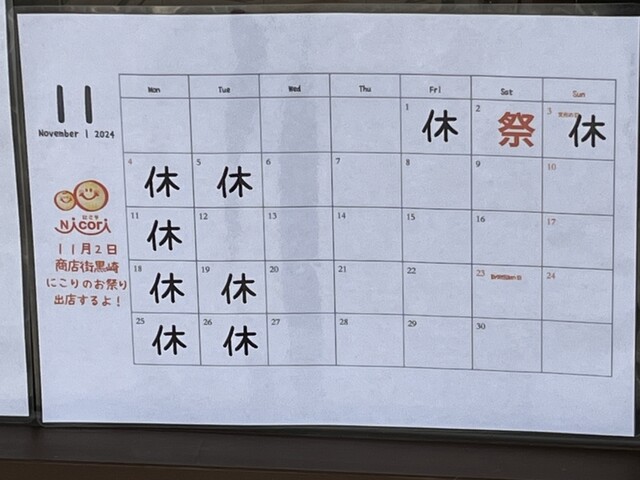 11
November | 2024
Mon Tue Wed Thu Fri Sat Sun
1 休 2 祭 3 休
4 休 5 休 6 7 8 9 10
11 休 12 13 14 15 16 17
18 休 19 休 20 21 22 23 24
25 休 26 休 27 28 29 30
にこり
Nicori
11月2日
商店街黒崎
にこりのお祭り
出店するよ!